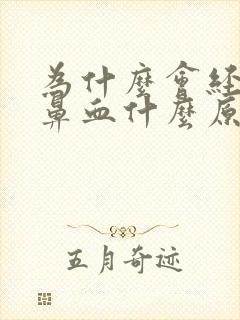 為什麼會经
鼻血什麼原
五月奇迹